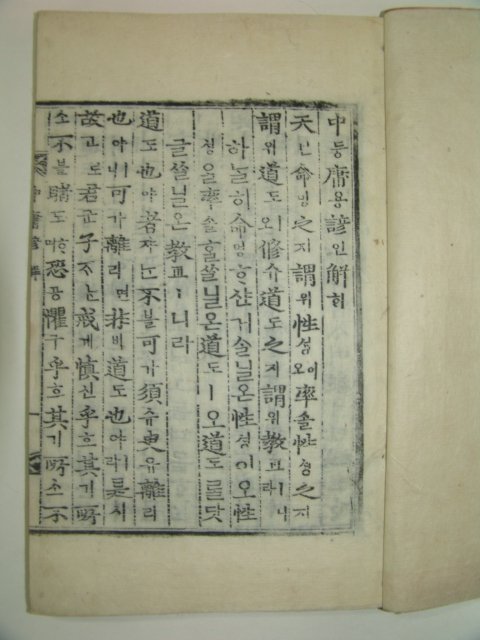 中듕庸용諺언解ᄒᆡ
天텬命명之지謂위性셩이오率솔性셩之지
謂위道도ㅣ오修슈道도之지謂위敎교ㅣ니라
하ᄂᆞᆯ히命명ᄒᆞ샨거슬닐온性셩이오性
셩을率솔ᄒᆞᆯᄊᆞᆯ닐온道도ㅣ오道도ᄅᆞᆯ닷
글ᄊᆞᆯ닐온敎교ㅣ니라
道도也야者쟈ᄂᆞᆫ不블可가須슈臾유離리
也야ㅣ니可가離리면非비道도也야ㅣ라是시
故고로君군子ᄌᆞᄂᆞᆫ戒계愼신乎호其기所
소不블睹도ᄒᆞ며恐공懼구乎호其기所소不
中庸諺解